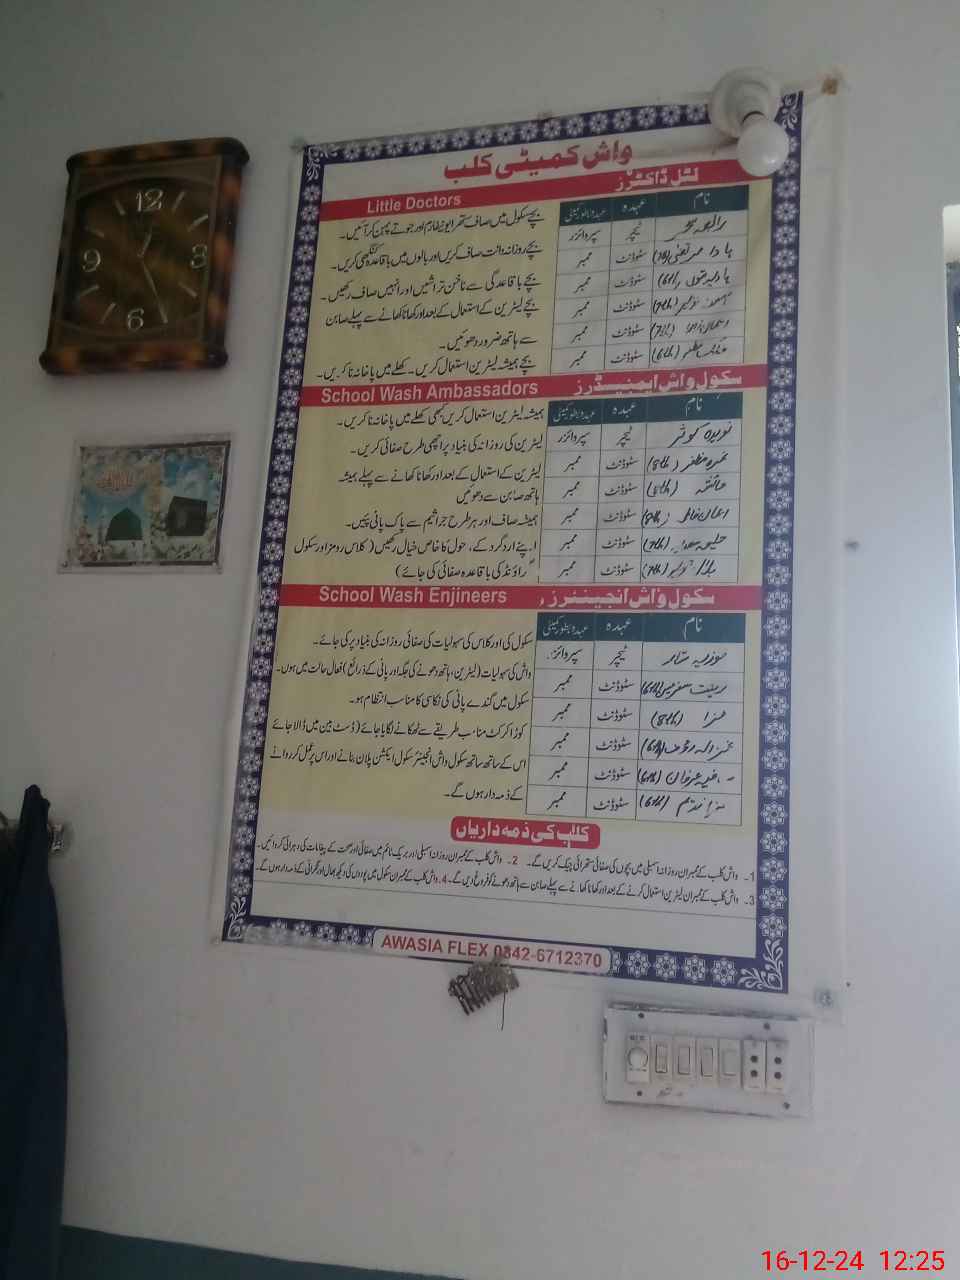 12
9
3
6
واش کمیٹی کلب
لٹل ڈاکٹرز
Little Doctors
نام عہدہ عہدہ بطور کمیٹی
ٹیچر سپروائزر
سٹوڈنٹ ممبر
سٹوڈنٹ ممبر
سٹوڈنٹ ممبر
سٹوڈنٹ ممبر
سٹوڈنٹ ممبر
بچے سکول میں صاف ستھرا یونیفارم اور جوتے پہن کر آئیں۔
بچے روزانہ دانت صاف کریں اور بالوں میں باقاعدہ کنگھی کریں۔
بچے باقاعدگی سے ناخن تراشیں اور انہیں صاف رکھیں۔
بچے لیٹرین کے استعمال کے بعد اور کھانا کھانے سے پہلے صابن
سے ہاتھ ضرور دھوئیں۔
بچے ہمیشہ لیٹرین استعمال کریں۔ کھلے میں پاخانہ نا کریں۔
سکول واش ایمبیسڈرز
School Wash Ambassadors
نام عہدہ عہدہ بطور کمیٹی
نویدہ کوثر ٹیچر سپروائزر
سٹوڈنٹ ممبر
عائشہ سٹوڈنٹ ممبر
سٹوڈنٹ ممبر
سٹوڈنٹ ممبر
سٹوڈنٹ ممبر
ہمیشہ لیٹرین استعمال کریں کبھی کھلے میں پاخانہ نا کریں۔
لیٹرین کی روزانہ کی بنیاد پر اچھی طرح صفائی کریں۔
لیٹرین کے استعمال کے بعد اور کھانا کھانے سے پہلے ہمیشہ
ہاتھ صابن سے دھوئیں
ہمیشہ صاف اور ہر طرح جراثیم سے پاک پانی پئیں۔
اپنے ارد گرد کے ماحول کا خاص خیال رکھیں (کلاس رومز اور سکول
گراؤنڈ کی باقاعدہ صفائی کی جائے)
سکول واش انجینئرز
School Wash Enjineers
نام عہدہ عہدہ بطور کمیٹی
ٹیچر سپروائزر
سٹوڈنٹ ممبر
سٹوڈنٹ ممبر
سٹوڈنٹ ممبر
سٹوڈنٹ ممبر
سٹوڈنٹ ممبر
سکول کی اور کلاس کی سہولیات کی صفائی روزانہ کی بنیاد پر کی جائے۔
واش کی سہولیات (لیٹرین، ہاتھ دھونے کی جگہ اور پانی کے ذرائع) فعال حالت میں ہوں۔
سکول میں گندے پانی کی نکاسی کا مناسب انتظام ہو۔
کوڑا کرکٹ مناسب طریقے سے ٹھکانے لگایا جائے (ڈسٹ بین میں ڈالا جائے
اس کے ساتھ ساتھ سکول واش انجینئر سکول ایکشن پلان بنانے اور اس پر عمل کروانے
کے ذمہ دار ہوں گے۔
کلب کی ذمہ داریاں
1۔ واش کلب کے ممبران روزانہ اسمبلی میں بچوں کی صفائی ستھرائی چیک کریں گے۔ 2۔ واش کلب کے ممبران روزانہ اسمبلی اور بریک ٹائم میں صفائی اور صحت کے پیغامات کی دہرائی کروائیں۔
3۔ واش کلب کے ممبران لیٹرین استعمال کرنے کے بعد اور کھانا کھانے سے پہلے صابن سے ہاتھ دھونے کو فروغ دیں گے۔ 4۔ واش کلب کے ممبران سکول میں پودوں کی دیکھ بھال اور نگرانی کے ذمہ دار ہوں گے۔
AWASIA FLEX 0342-6712370
16-12-24 12:25